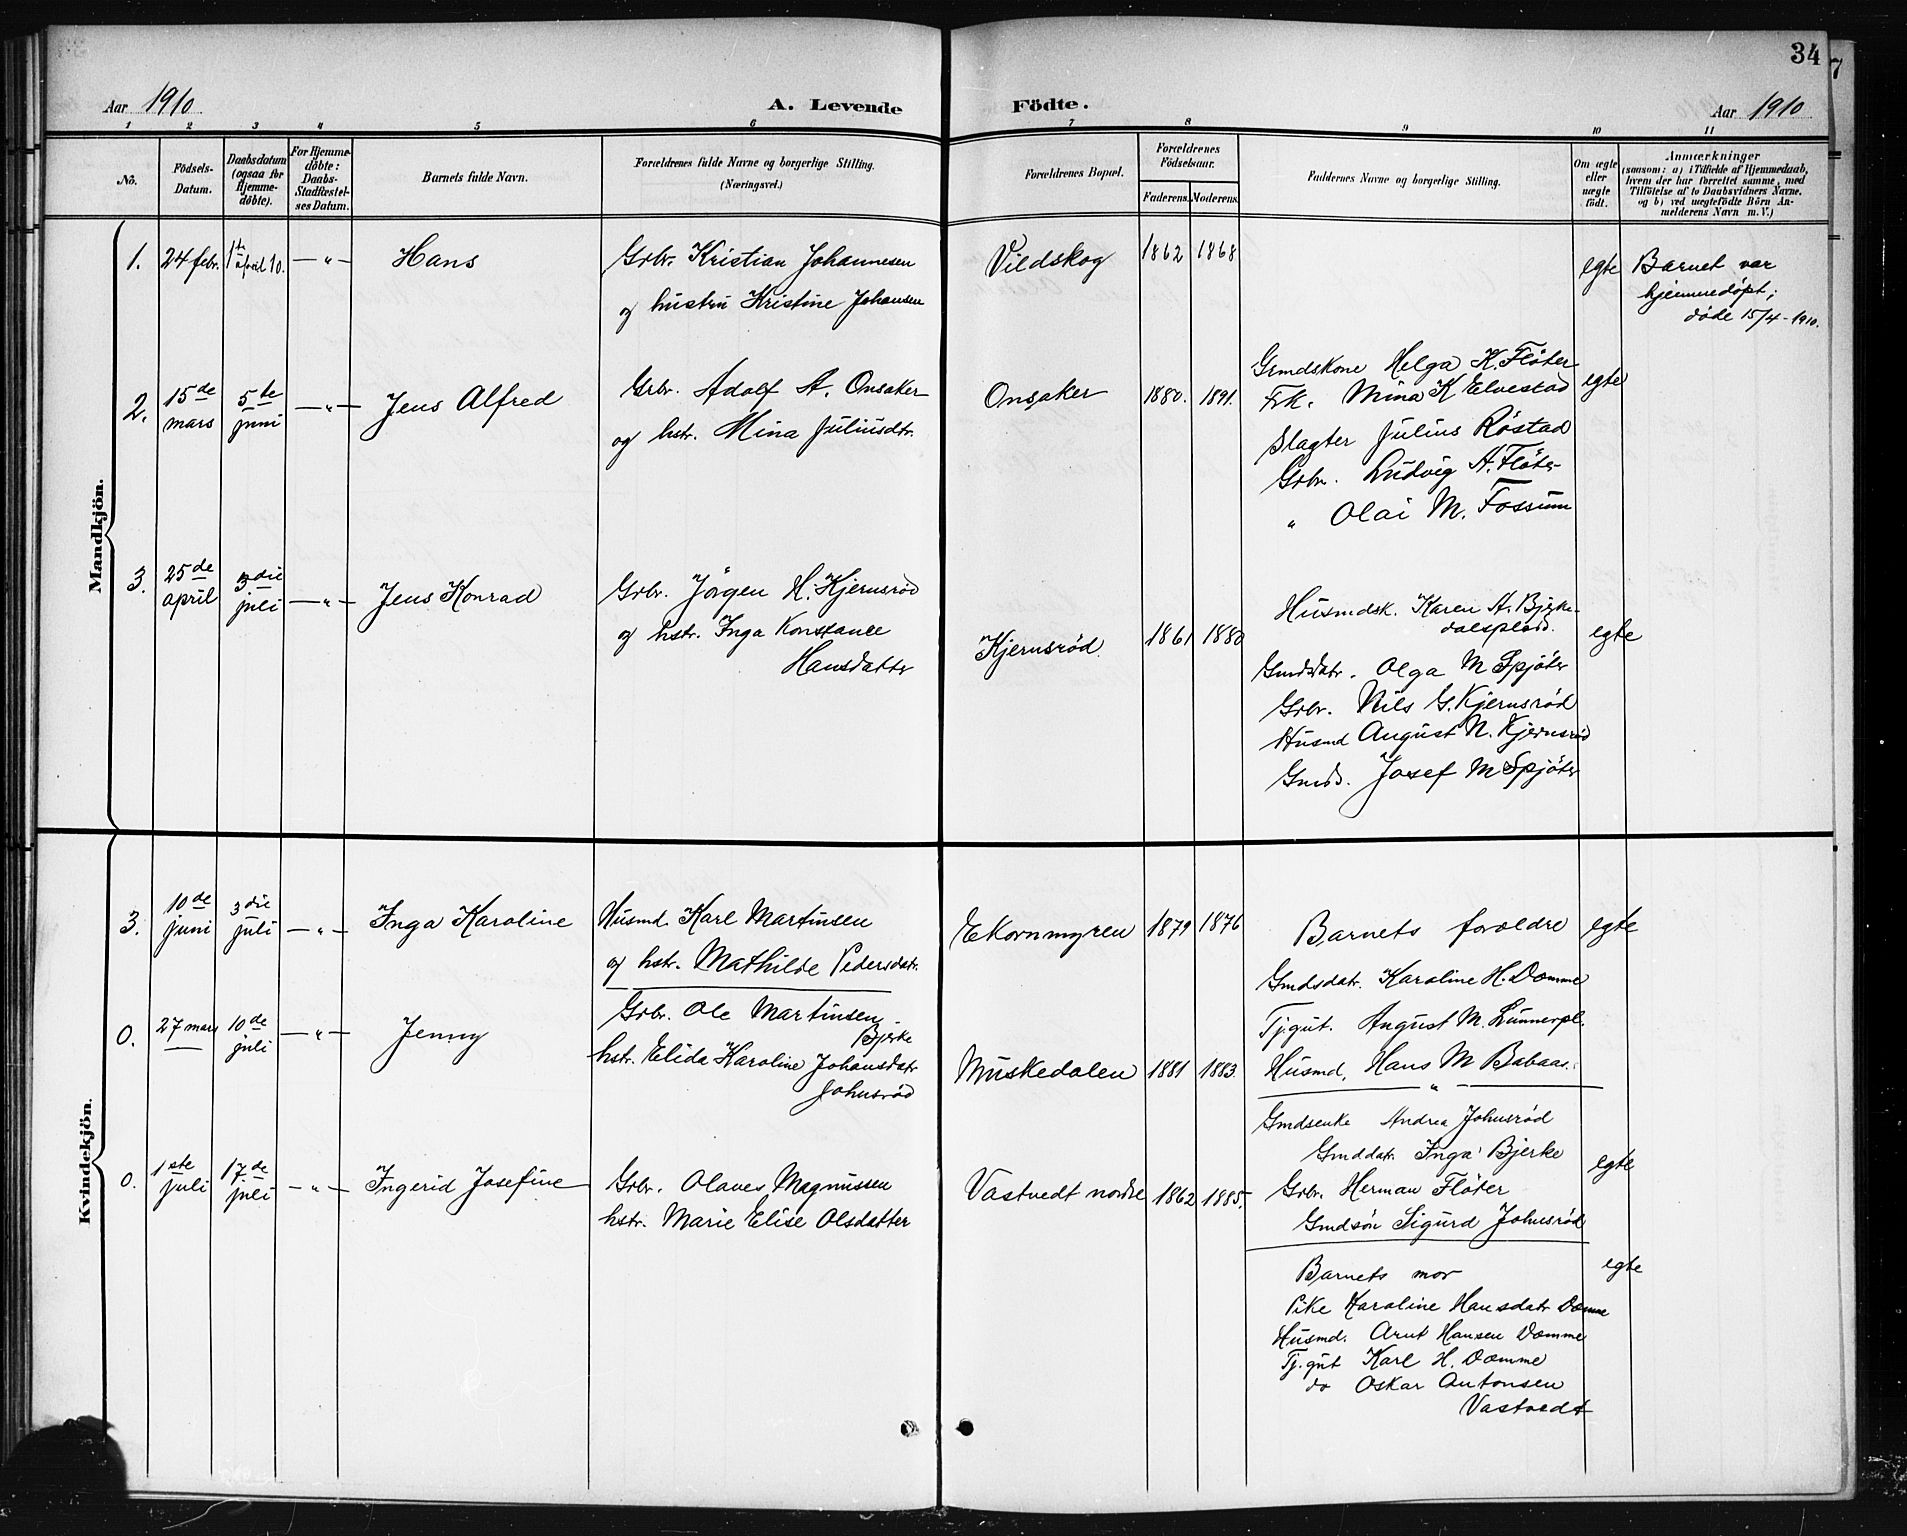 34
7
Aar 1910
A. Levende
Födte.
Aar 1910
1 2 3 4 5 6 7 8 9 10 11
No.
Födsels-
Datum.
Daabsdatum
(ogsaa for
Hjemme-
döbte).
For Hjemme-
döbte:
Daabs-
Stadfæstel-
ses Datum.
Barnets fulde Navn.
Forældrenes fulde Navne og borgerlige Stilling.
(Næringsvei.)
Forældrenes Bopæl.
Forældrenes
Födselsaar.
Faderens. Moderens.
Faddernes Navne og borgerlige Stilling.
Om ægte
eller
uægte
födt.
Anmærkninger
(saasom: a) i Tilfælde af Hjemmedaab,
hvem der har forrettet samme, med
Tilföielse af to Daabsvidners Navne.
og b) ved uegtefödte Börn An-
melderens Navn m. V.)
Mandkjön.
1. 24 febr. 1ste april 10. — " — Hans
Grbr. Kristian Johannesen
og hustru Kristine Johansen
Vildskog 1862 1868
egte
Barnet var
hjemmedöpt;
döde 15/4 - 1910.
2. 15de mars 5te juni — " — Jens Alfred
Grbr. Adolf A. Onsaker
og hstr. Mina Juliusdtr.
Onsaker 1880. 1891.
Grmdskone Helga K. Flöter
Frk. Mina K Elvestad
Slagter Julius Röstad
Grbr. Ludvig A. Flöter
" Olai M. Fossum
egte
3. 25de april 3die juli — " — Jens Konrad
Grbr. Jörgen H. Kjernsröd
og hstr. Inga Konstance
Hansdatter
Kjernsröd. 1861 1880
Husmdsk. Karen A. Bjerke-
dalsplads.
Gmdsdatr. Olga M Spjöter
Grbr. Nils G. Kjernsröd
Husmd August N. Kjernsröd
Gmds. Josef M Spjöter
egte
Kvindekjön.
3. 10de juni 3die juli — " — Inga Karoline
Husmd. Karl Martinsen
og hstr. Mathilde Pedersdatr.
Ekornmyren 1879 1876
Barnets forældre
Gmdsdatr. Karoline H. Dæmme
Tj.gut. August M. Lunnerpl.
Husmd. Hans M Babaas.
— " —
egte
0. 27 mars 10de juli — " — Jenny
Grbr. Ole Martinsen
Bjerke
hstr. Elida Karoline Johansdatr
Johnsröd
Muskedalen 1881 1883.
Gmdsenke Andrea Johnsröd
Gmddatr. Inga Bjerke
Grbr. Herman Flöter
Gmdsön Sigurd Johnsröd
egte
0. 1ste juli 17de juli — " — Ingerid Josefine
Grbr. Olaves Magnussen
hstr. Marie Elise Olsdatter
Vastvedt nordre 1862 1885.
Barnets mor
Pike Karoline Hansdatr Dæmme
Husmd. Arnt Hansen Dæmme
Tj.gut Karl H. Dæmme
do Oskar Antonsen
Vastvedt
egte